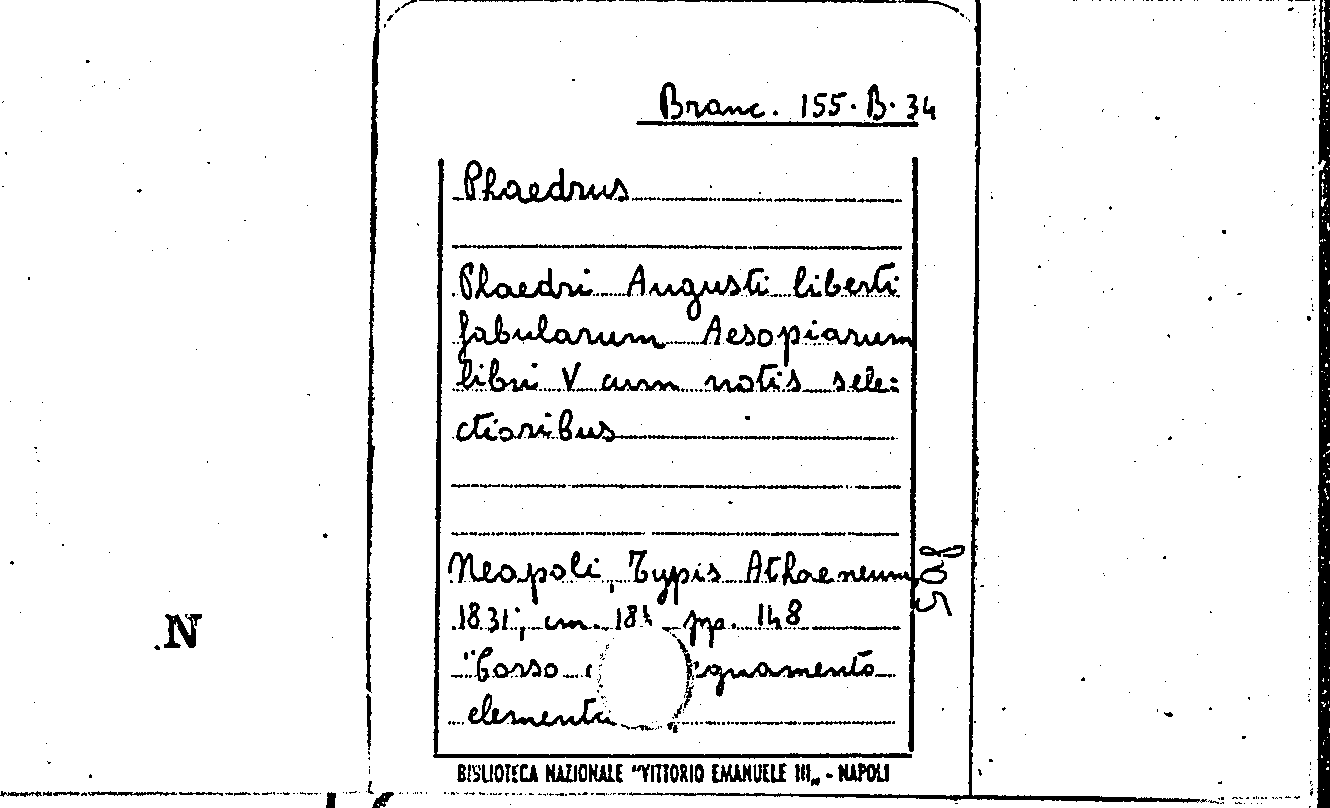 Branc. 155. B. 34
Phaedrus
Phaedri Augusti liberti
fabularum Aesopiarum
libri V cum notis sele:
ctioribus
Neapoli, Typis Athaeneum,
1831; cm. pp. 148
"Corso
elementa
805
N
BIBLIOTECA NAZIONALE "VITTORIO EMANUELE III„ - NAPOLI